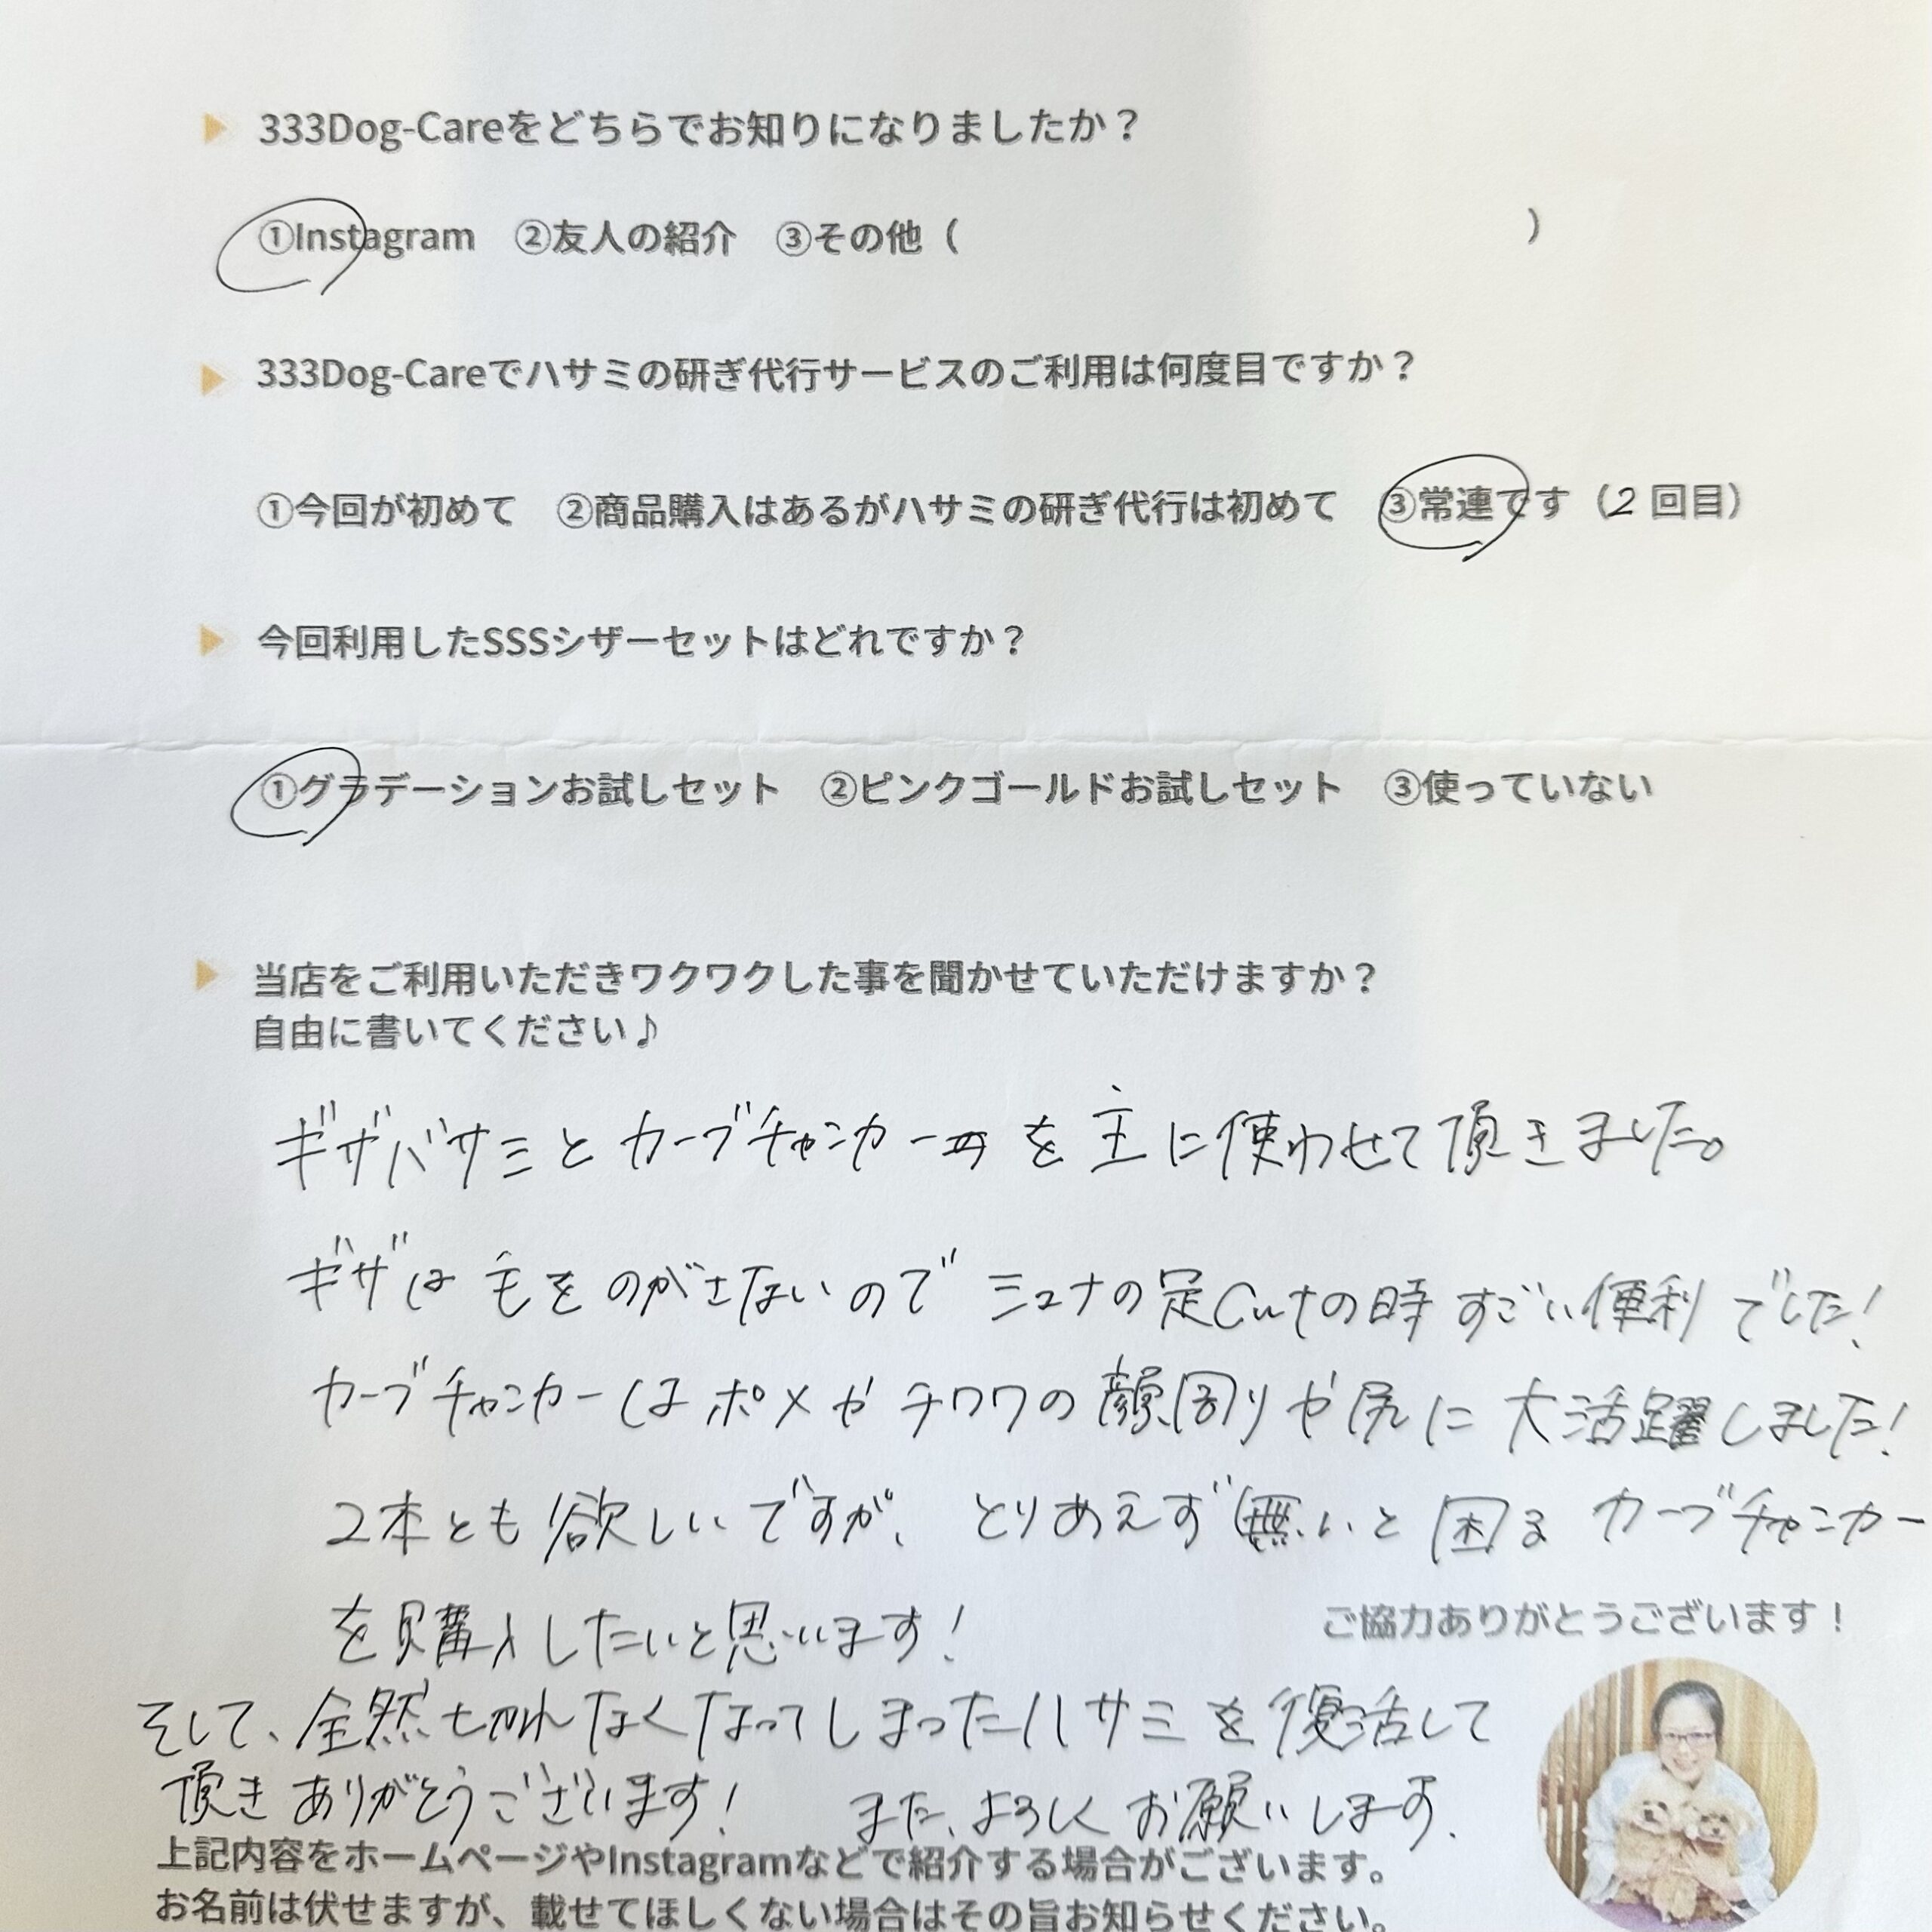 333Dog-Careをどちらでお知りになりましたか？
①Instagram ②友人の紹介 ③その他（ ）
333Dog-Careでハサミの研ぎ代行サービスのご利用は何度目ですか？
①今回が初めて ②商品購入はあるがハサミの研ぎ代行は初めて ③常連です（2回目）
今回利用したSSSシザーセットはどれですか？
①グラデーションお試しセット ②ピンクゴールドお試しセット ③使っていない
当店をご利用いただきワクワクした事を聞かせていただけますか？
自由に書いてください♪
ギザバサミとカーブチャンカーを主に使わせて頂きました。
ギザは毛をのがさないのでミュナの足Cutの時すごい便利でした！
カーブチャンカーはポメやチワワの顔周りや尻に大活躍しました！
2本とも欲しいですが、とりあえず無いと困るカーブチャンカー
を購入したいと思います！
ご協力ありがとうございます！
そして、全然切れなくなってしまったハサミを復活して
頂きありがとうございます！ また、よろしくお願いします.
上記内容をホームページやInstagramなどで紹介する場合がございます。
お名前は伏せますが、載せてほしくない場合はその旨お知らせください。